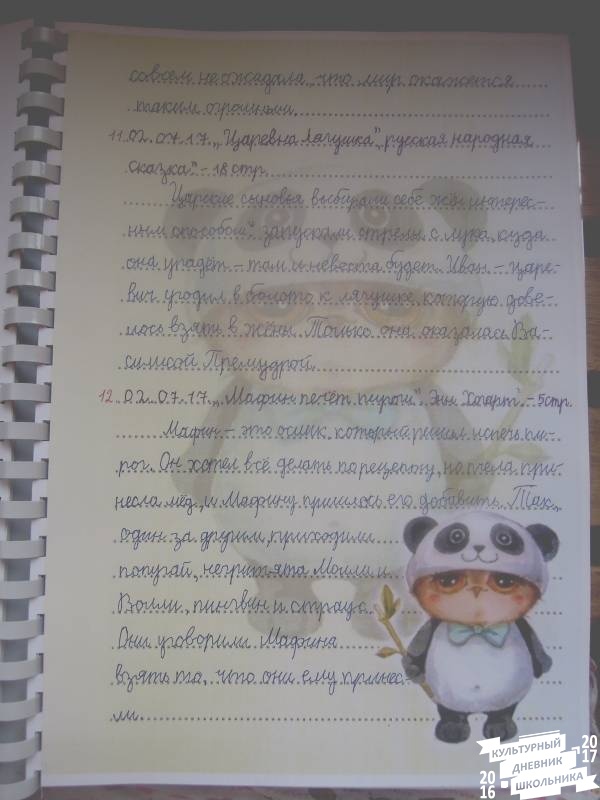 совсем не ожидала, что мир окажется
таким огромным.
11. 02.07.17. „Царевна лягушка", русская народная
сказка." - 18 стр.
Царские сыновья выбирали себе жён интерес-
ным способом: запускали стрелы с лука, куда
она упадёт - там и невеста будет. Иван - царе-
вич угодил в болото к лягушке, которую дове-
лось взять в жёны. Только она оказалась Ва-
силисой Премудрой.
12. 02.07.17. „Мафин печёт пирог". Энн Хогарт - 5 стр.
Мафин - это ослик, который решил испечь пи-
рог. Он хотел всё делать по рецепту, но пчела при-
несла мёд, и Мафину пришлось его добавить. Так,
один за другим, приходили
попугай, негритята Молли и
Волли, пингвин и страус.
Они уговорили Мафина
взять то, что они ему принес-
ли.
КУЛЬТУРНЫЙ
ДНЕВНИК
ШКОЛЬНИКА
2016
2017